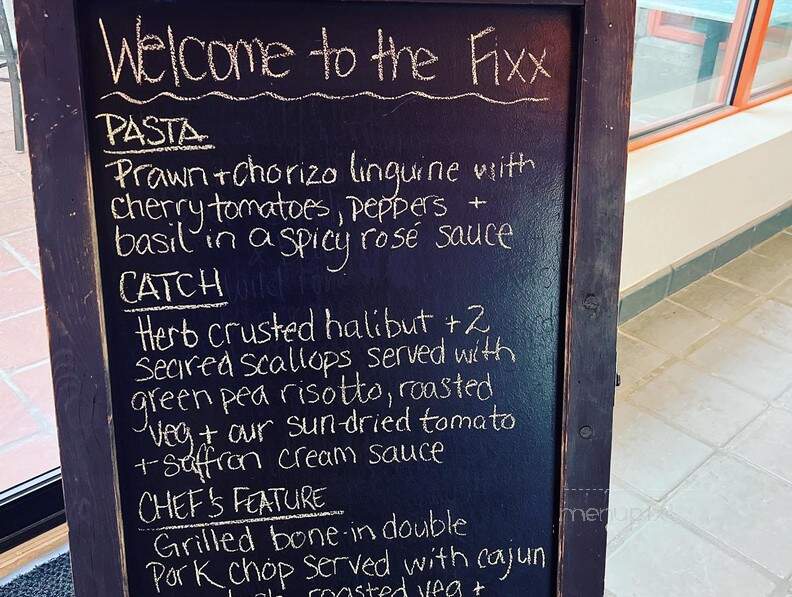 Welcome to the Fixx
PASTA
Prawn + chorizo linguine with
cherry tomatoes, peppers +
basil in a spicy rosé sauce
CATCH
Herb crusted halibut + 2
seared scallops served with
green pea risotto, roasted
veg + our sun-dried tomato
+ saffron cream sauce
CHEF'S FEATURE
Grilled bone-in double
pork chop served with cajun
roasted veg +
menupix